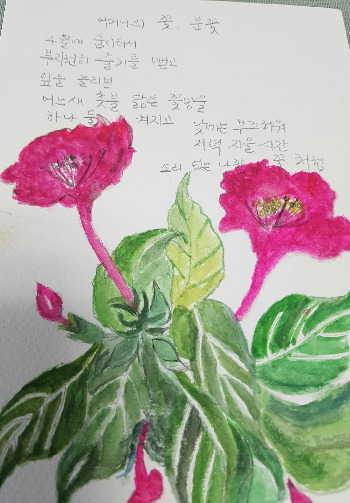 어머니의 꽃, 분꽃
4월에 움이터서
부지런히 줄기를 뻗고
잎을 늘리븐
어느새 촛불 닮은 꽃망울
하나 둘 켜지고
낮에는 부끄러워
저녁 지을 시간
소리 없는 나팔 꽃 처럼